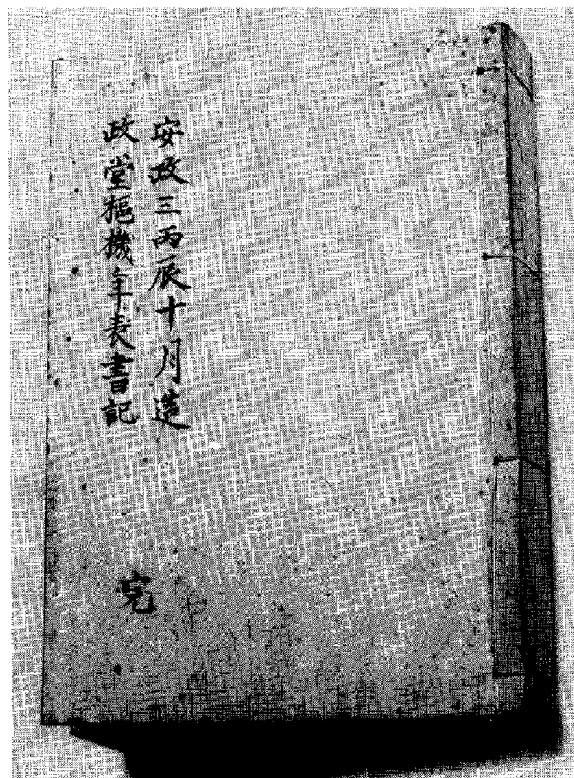 安政三丙辰十月造
政堂樞機年表書記
完